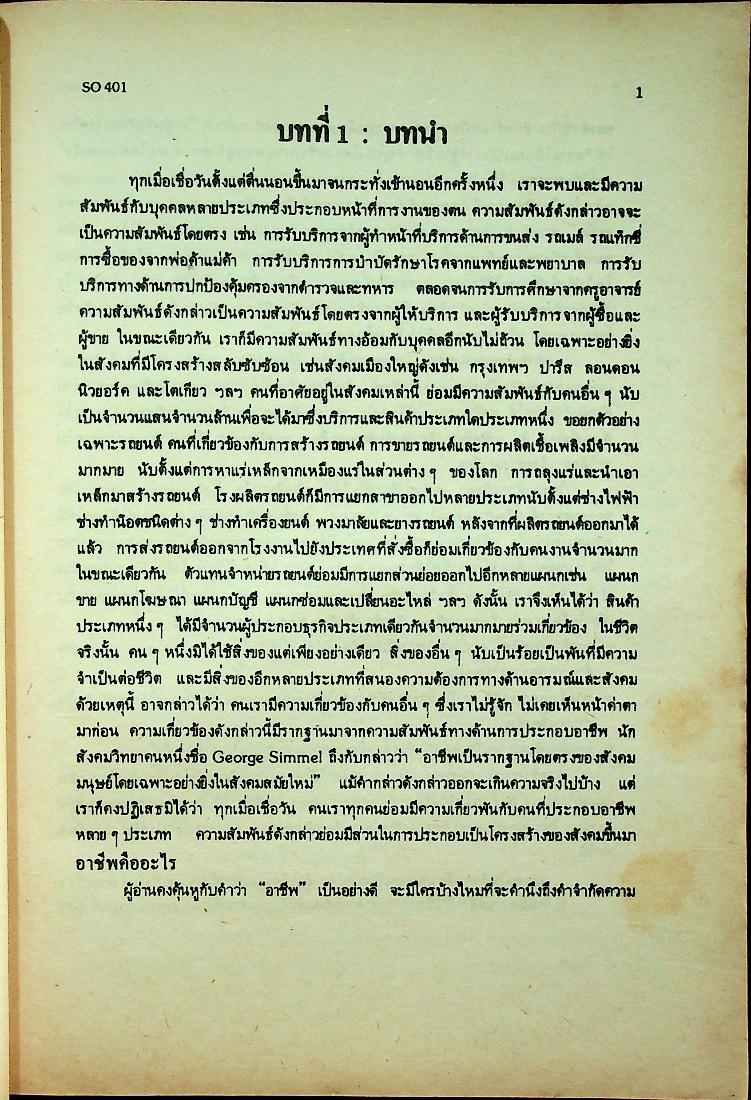 SO 401
1
บทที่ 1 : บทนำ
ทุกเมื่อเชื่อวันตั้งแต่ตื่นนอนขึ้นมาจนกระทั่งเข้านอนอีกครั้งหนึ่ง เราจะพบและมีความ
สัมพันธ์กับบุคคลหลายประเภทซึ่งประกอบหน้าที่การงานของตน ความสัมพันธ์ดังกล่าวอาจจะ
เป็นความสัมพันธ์โดยตรง เช่น การรับบริการจากผู้ทำหน้าที่บริการด้านการขนส่ง รถเมล์ รถแท็กซี่
การซื้อของจากพ่อค้าแม่ค้า การรับบริการการบำบัดรักษาโรคจากแพทย์และพยาบาล การรับ
บริการทางด้านการปกป้องคุ้มครองจากตำรวจและทหาร ตลอดจนการรับการศึกษาจากครูอาจารย์
ความสัมพันธ์ดังกล่าวเป็นความสัมพันธ์โดยตรงจากผู้ให้บริการ และผู้รับบริการจากผู้ซื้อและ
ผู้ขาย ในขณะเดียวกัน เราก็มีความสัมพันธ์ทางอ้อมกับบุคคลอีกนับไม่ถ้วน โดยเฉพาะอย่างยิ่ง
ในสังคมที่มีโครงสร้างสลับซับซ้อน เช่นสังคมเมืองใหญ่ดังเช่น กรุงเทพฯ ปารีส ลอนดอน
นิวยอร์ค และโตเกียว ฯลฯ คนที่อาศัยอยู่ในสังคมเหล่านี้ ย่อมมีความสัมพันธ์กับคนอื่น ๆ นับ
เป็นจำนวนแสนจำนวนล้านเพื่อจะได้มาซึ่งบริการและสินค้าประเภทใดประเภทหนึ่ง ขอยกตัวอย่าง
เฉพาะรถยนต์ คนที่เกี่ยวข้องกับการสร้างรถยนต์ การขายรถยนต์และการผลิตเชื้อเพลิงมีจำนวน
มากมาย นับตั้งแต่การหาแร่เหล็กจากเหมืองแร่ในส่วนต่าง ๆ ของโลก การถลุงแร่และนำเอา
เหล็กมาสร้างรถยนต์ โรงผลิตรถยนต์ก็มีการแยกสาขาออกไปหลายประเภทนับตั้งแต่ช่างไฟฟ้า
ช่างทำน๊อตชนิดต่าง ๆ ช่างทำเครื่องยนต์ พวงมาลัยและยางรถยนต์ หลังจากที่ผลิตรถยนต์ออกมาได้
แล้ว การส่งรถยนต์ออกจากโรงงานไปยังประเทศที่สั่งซื้อก็ย่อมเกี่ยวข้องกับคนงานจำนวนมาก
ในขณะเดียวกัน ตัวแทนจำหน่ายรถยนต์ย่อมมีการแยกส่วนย่อยออกไปอีกหลายแผนกเช่น แผนก
ขาย แผนกโฆษณา แผนกบัญชี แผนกซ่อมและเปลี่ยนอะไหล่ ฯลฯ ดังนั้น เราจึงเห็นได้ว่า สินค้า
ประเภทหนึ่ง ๆ ได้มีจำนวนผู้ประกอบธุรกิจประเภทเดียวกันจำนวนมากมายร่วมเกี่ยวข้อง ในชีวิต
จริงนั้น คน ๆ หนึ่งมิได้ใช้สิ่งของแต่เพียงอย่างเดียว สิ่งของอื่น ๆ นับเป็นร้อยเป็นพันที่มีความ
จำเป็นต่อชีวิต และมีสิ่งของอีกหลายประเภทที่สนองความต้องการทางด้านอารมณ์และสังคม
ด้วยเหตุนี้ อาจกล่าวได้ว่า คนเรามีความเกี่ยวข้องกับคนอื่น ๆ ซึ่งเราไม่รู้จัก ไม่เคยเห็นหน้าค่าตา
มาก่อน ความเกี่ยวข้องดังกล่าวนี้มีรากฐานมาจากความสัมพันธ์ทางด้านการประกอบอาชีพ นัก
สังคมวิทยาคนหนึ่งชื่อ George Simmel ถึงกับกล่าวว่า "อาชีพเป็นรากฐานโดยตรงของสังคม
มนุษย์โดยเฉพาะอย่างยิ่งในสังคมสมัยใหม่" แม้คำกล่าวดังกล่าวออกจะเกินความจริงไปบ้าง แต่
เราก็คงปฏิเสธมิได้ว่า ทุกเมื่อเชื่อวัน คนเราทุกคนย่อมมีความเกี่ยวพันกับคนที่ประกอบอาชีพ
หลาย ๆ ประเภท ความสัมพันธ์ดังกล่าวย่อมมีส่วนในการประกอบเป็นโครงสร้างของสังคมขึ้นมา
อาชีพคืออะไร
ผู้อ่านคงคุ้นหูกับคำว่า "อาชีพ" เป็นอย่างดี จะมีใครบ้างไหมที่จะคำนึงถึงคำจำกัดความ